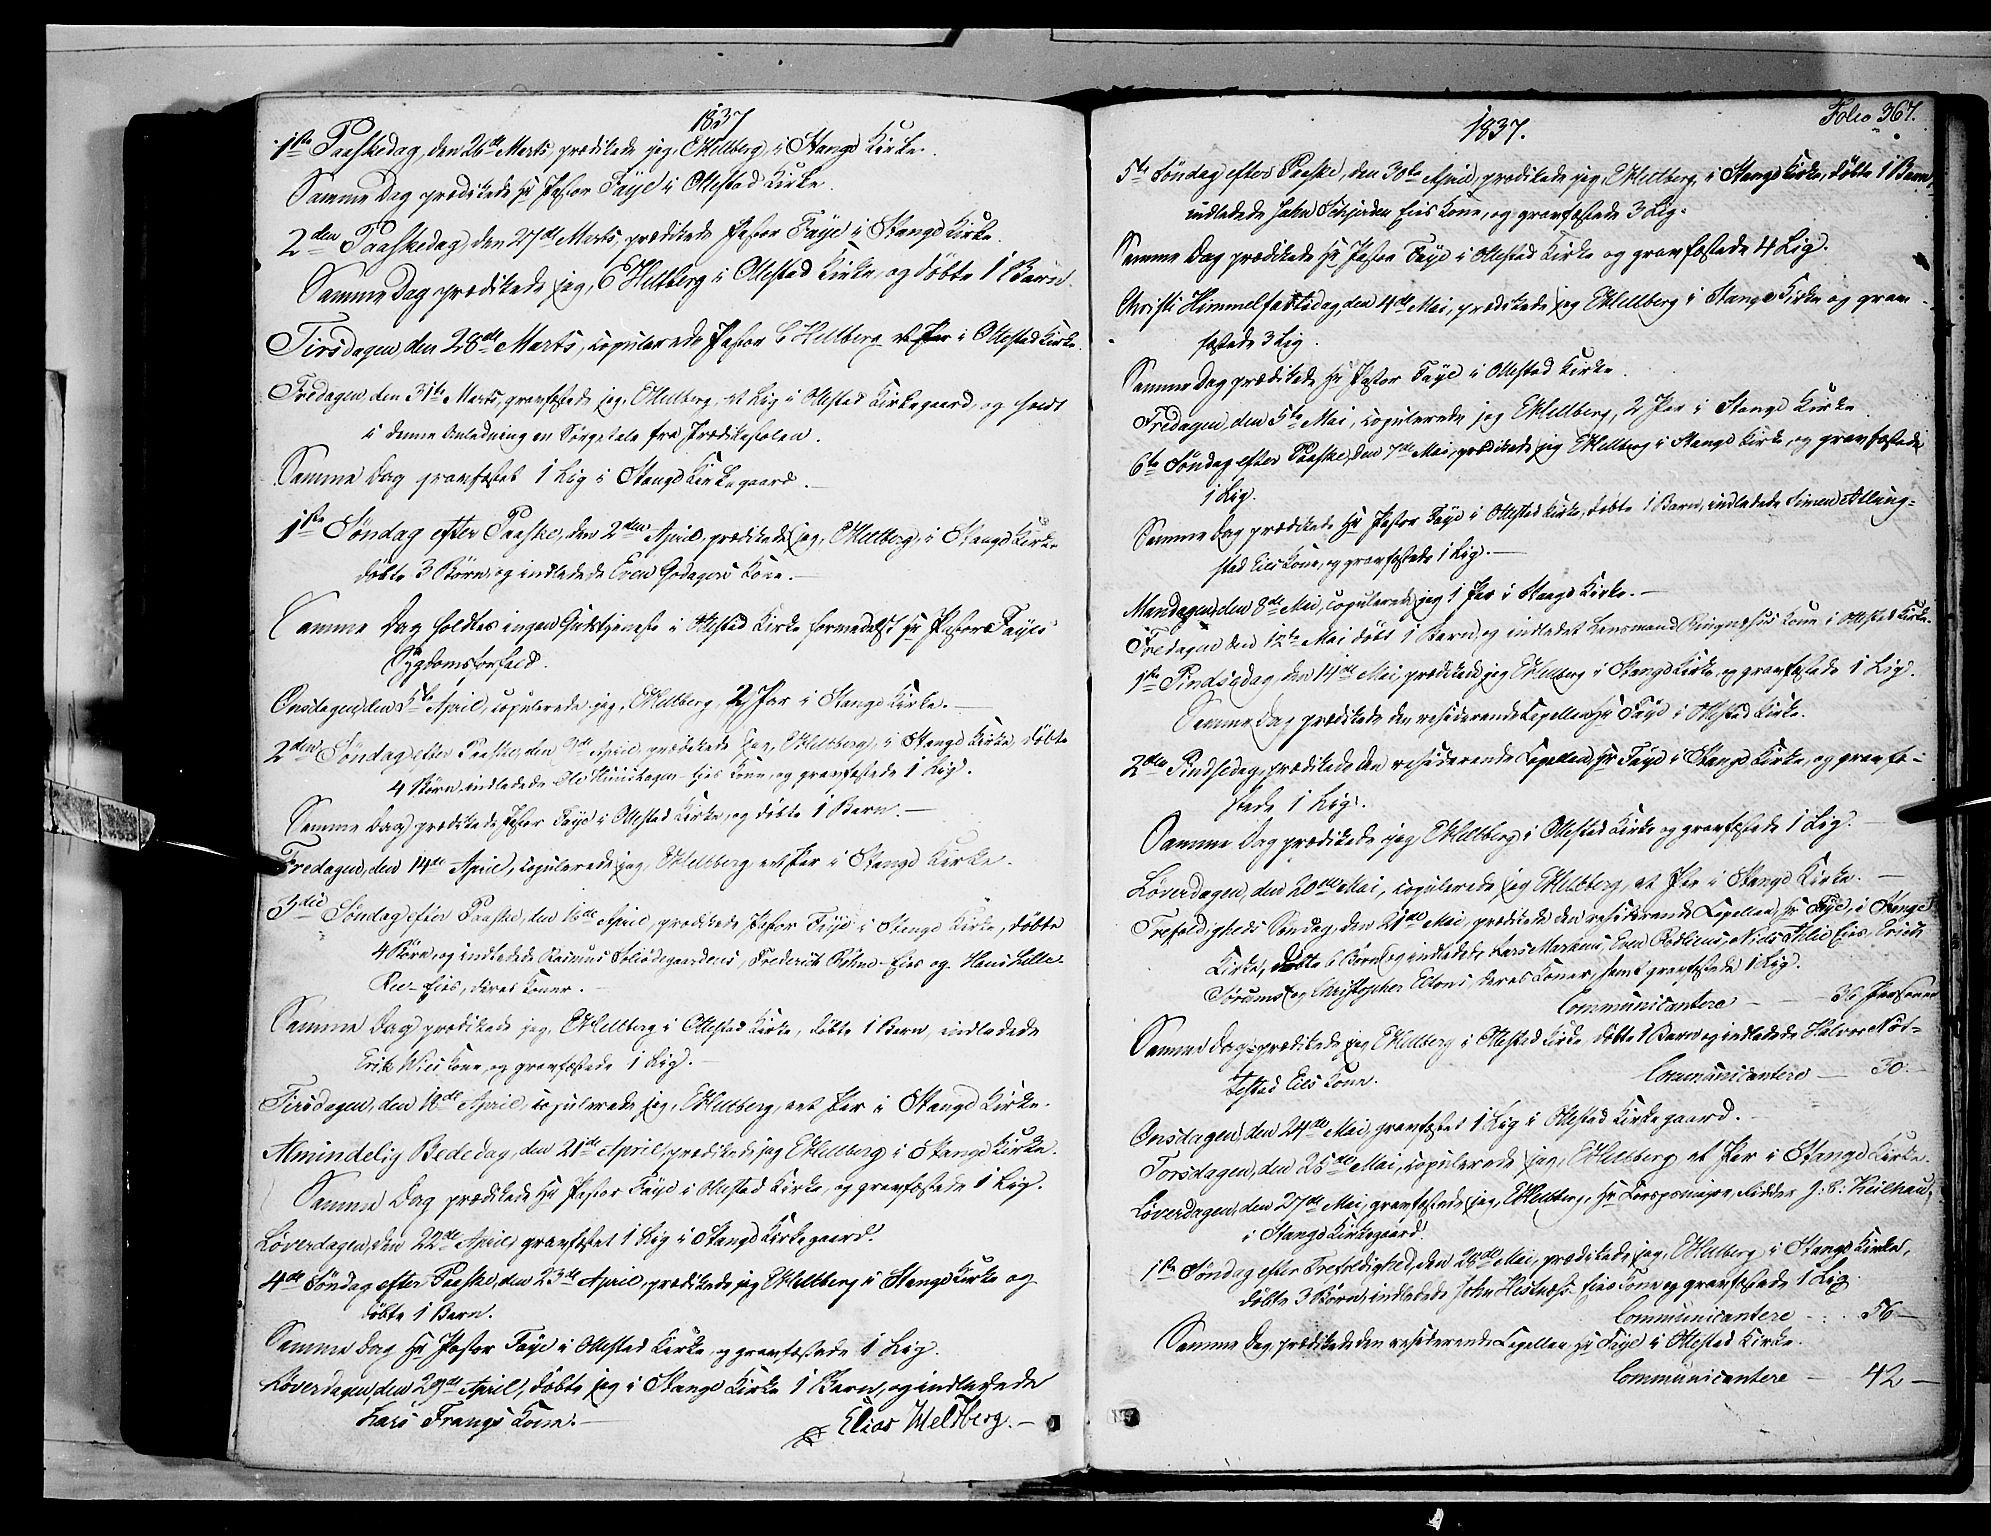 1837
1ste Paaskedag, den 26de Marts prædikede jeg, E Heltberg, i Stange Kirke.
Samme Dag prædikede Hr Pastor Faye i Ottestad Kirke.
2den Paaskedag, den 27de Marts, prædikede Pastor Faye i Stange Kirke.
Samme Dag prædikede jeg, E Heltberg i Ottestad Kirke, og døbte 1 Barn.
Tirsdagen den 28de Marts, copulerede Pastor E Heltberg et Par i Ottestad Kirke.
Fredagen, den 31te Marts, gravfæstede jeg, E Heltberg, et Lig i Ottestad Kirkegaard, og holdt
i denne Anledning en Sørgetale fra Prædikestolen.
Samme Dag gravfæstet 1 Lig i Stange Kirkegaard.
1ste Søndag efter Paaske, den 2den April, prædikede jeg, E Heltberg, i Stange Kirke
døbte 3 Børn og indledede Even Godagers Kone.
Samme Dag holdtes ingen Gudstjeneste i Ottestad Kirke formedelst Hr Pastor Fayes
Sygdomsforfald.
Onsdagen, den 5te April, copulerede jeg, E Heltberg, 2 Par i Stange Kirke.
2den Søndag efter Paaske, den 9de April, prædikede jeg, E Heltberg, i Stange Kirke, døbte
4 Børn indledede Ole Eies Kone, og gravfæstede 1 Lig.
Samme Dag prædikede Pastor Faye i Ottestad Kirke, og døbte 1 Barn.
Fredagen, den 14de April, copulerede jeg, E Heltberg, et Par i Stange Kirke.
3die Søndag efter Paaske, den 16de April, prædikede Pastor Faye i Stange Kirke, døbte
4 Børn, og indledede Rasmus, Frederik Bøhn-Eies og Hans Lille-
Rue-Eies, deres Koner.
Samme Dag prædikede jeg, E Heltberg i Ottestad Kirke, døbte 1 Barn, indledede
Erik Wiis Kone, og gravfæstede 1 Lig.
Tirsdagen, den 18de April, copulerede jeg, E Heltberg, eet Par i Stange Kirke.
Almindelig Bededag, den 21de April, prædikede jeg E Heltberg i Stange Kirke.
Samme Dag prædikede Hr Pastor Faye i Ottestad Kirke, og gravfæstede 1 Lig.
Løverdagen, den 22de April, gravfæstet 1 Lig i Stange Kirkegaard.
4de Søndag efter Paaske, den 23de April, prædikede jeg E Heltberg i Stange Kirke og
døbte 1 Barn.
Samme Dag Hr Pastor Faye i Ottestad Kirke og gravfæstede 1 Lig.
Løverdagen, den 29de April, døbte jeg i Stange Kirke 1 Barn, og indledede
Lars Frangs Kone.
Elias Heltberg.
Folio 367.
1837.
5te Søndag efter Paaske, den 30te April, prædikede jeg, E Heltberg, i Stange Kirke, døbte 1 Barn,
indledede John Schjerden Eies Kone, og gravfæstede 3 Lig.
Samme Dag prædikede Hr Pastor Faye i Ottestad Kirke og gravfæstede 4 Lig.
Christi Himmelfartsdag, den 4de Mai, prædikede jeg E Heltberg i Stange Kirke og grav-
fæstede 3 Lig.
Samme Dag prædikede Hr Pastor Faye i Ottestad Kirke.
Fredagen, den 5te Mai, copulerede jeg E Heltberg, 2 Par i Stange Kirke.
6te Søndag efter Paaske, den 7de Mai, prædikede jeg E Heltberg i Stange Kirke, og gravfæstede
1 Lig.
Samme Dag prædikede Hr Pastor Faye i Ottestad Kirke, døbte 1 Barn, indledede Simen Atlung-
stad Eies Kone, og gravfæstede 1 Lig.
Mandagen, den 8de Mai, copulerede jeg 1 Par i Stange Kirke.
Fredagen den 12te Mai døbt 1 Barn, og indledet Lensmand Ringnæses Kone i Ottestad Kirke.
1ste Pindsedag den 14de Mai, prædikede jeg E Heltberg i Stange Kirke og gravfæstede 1 Lig.
Samme Dag prædikede den residerende Capellan Hr Faye i Ottestad Kirke.
2den Pindsedag, prædikede den residerende Capellan, Hr Faye i Stange Kirke, og gravfæ-
stede 1 Lig.
Samme Dag prædikede jeg, E Heltberg i Ottestad Kirke og gravfæstede 1 Lig.
Løverdagen, den 20de Mai, copulerede jeg E Heltberg, et Par i Stange Kirke.
Trefoldigheds Søndag, den 21de Mai, prædikede den residerende Capellan, Hr Faye, i Stange
Kirke, døbte 6 Børn, og indledede, Lars Markens, Even, Niels Eies, Erich
Sørums, og Christopher deres Koner, samt gravfæstede 1 Lig.
Communicantere - - 36 Personer
Samme Dag prædikede jeg E Heltberg i Ottestad Kirke, døbte 1 Barn og indledede Halvor Nød-
testad Eies Kone. Communicantere - 30 -
Onsdagen, den 24de Mai, gravfæstet 1 Lig i Ottestad Kirkegaard.
Torsdagen, den 25de Mai, copulerede jeg, E Heltberg et Par i Stange Kirke.
Løverdagen, den 27de Mai, gravfæstede jeg, E Heltberg, Hr Corpsmajor, Ridder J: C: Keilhau,
i Stange Kirkegaard.
1ste Søndag efter Trefoldighed, den 28de Mai, prædikede jeg, E Heltberg, i Stange Kirke,
døbte 3 Børn, indledede John Hestnæss-Eies Kone og gravfæstede 1 Lig.
Communicantere - : 56 -
Samme Dag prædikede den residerende Capellan Hr Faye i Ottestad Kirke.
Communicantere - 42 -